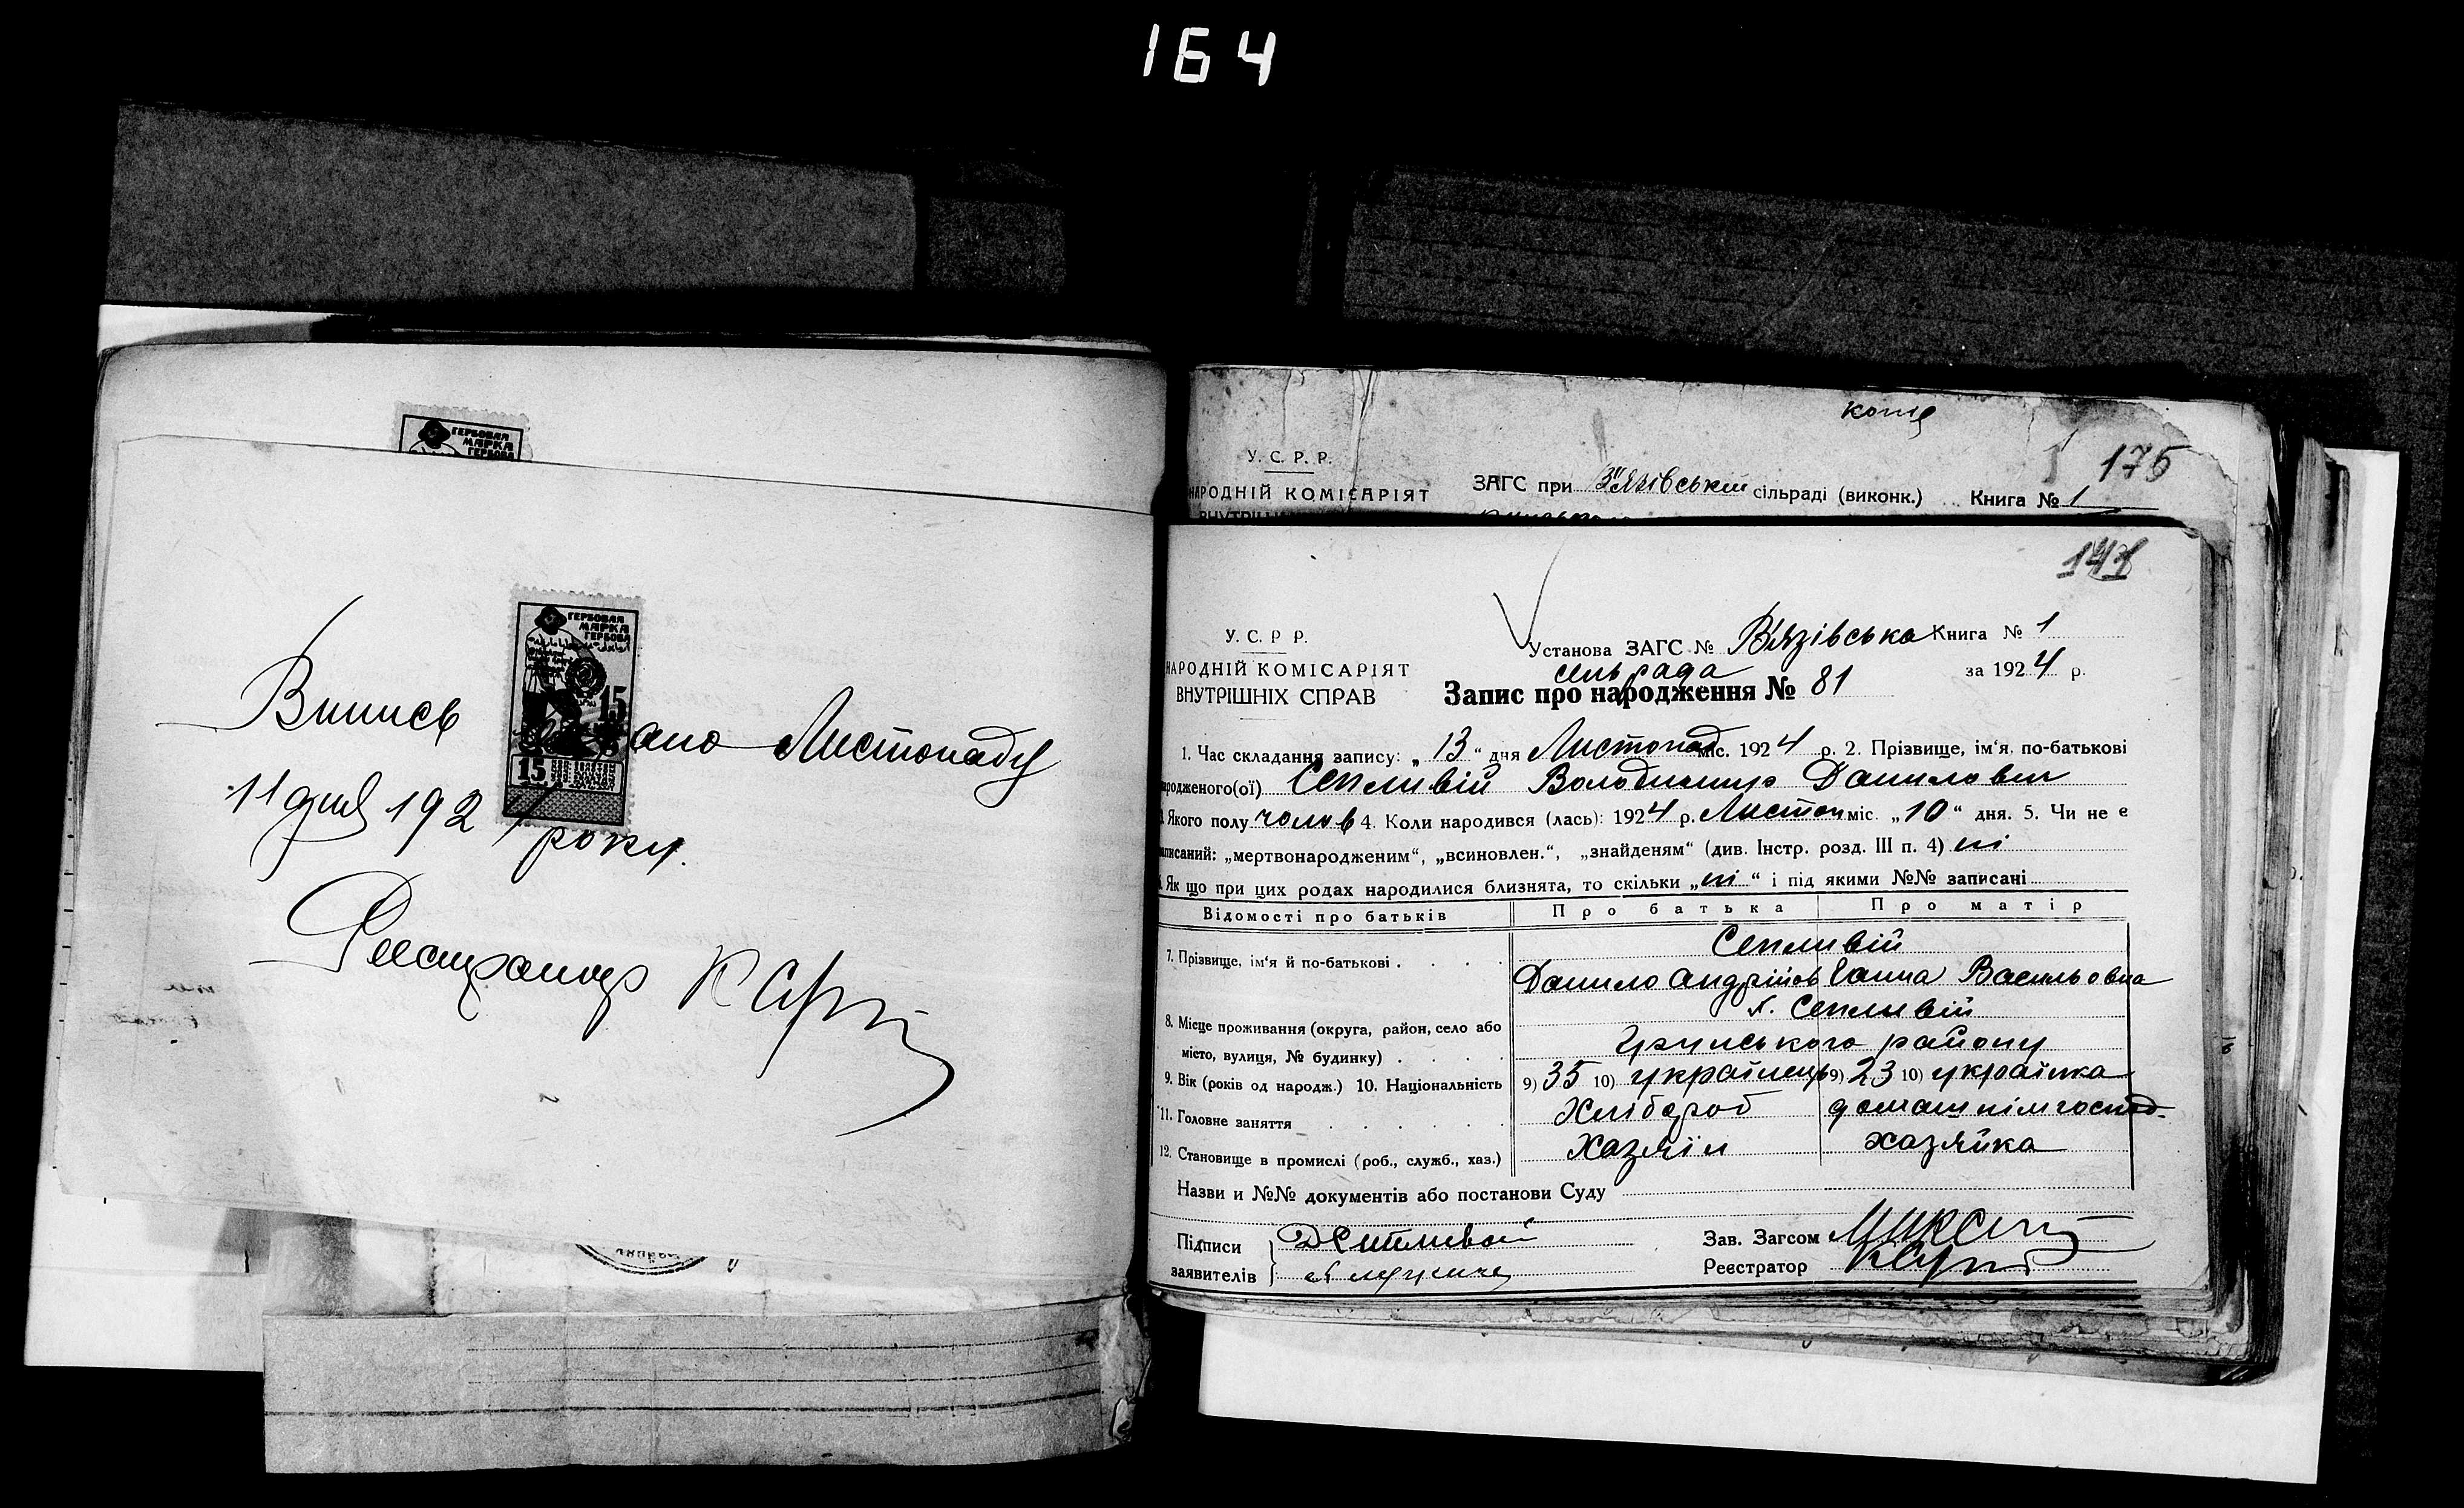 164
ГЕРБОВАЯ
МАРКА
ГЕРБОВА
ГЕРБОВАЯ
МАРКА
ГЕРБОВА
15
15
Випись ано Листопаду
11 дня 192 року.
Реєстратор
копия
175
У. С. Р. Р.
НАРОДНІЙ КОМІСАРІЯТ
ЗАГС при В'язівській сільраді (виконк.) Книга № 1
141
У. С. Р Р.
НАРОДНІЙ КОМІСАРІЯТ
ВНУТРІШНІХ СПРАВ
Установа ЗАГС № В'язівська Книга № 1
сельрада за 1924 р.
Запис про народження № 81
1. Час складання запису: „13“ дня Листопад міс. 1924 р. 2. Прізвище, ім'я, по-батькові
народженого(ої) Сепливій Володимир Данилович
3. Якого полу чолов 4. Коли народився (лась): 1924 р. Листоп міс. „10“ дня. 5. Чи не є
записаний: „мертвонародженим“, „всиновлен.“, „знайденям“ (див. Інстр. розд. III п. 4) ні
6. Як що при цих родах народилися близнята, то скільки „ні“ і під якими №№ записані
Відомості про батьків Про батька Про матір
7. Прізвище, ім'я й по-батькові . Сепливій
Данило Андрійов Ганна Васильовна
8. Місце проживання (округа, район, село або х. Сепливій
місто, вулиця, № будинку) . Грунського району
9. Вік (років од народж.) 10. Національність 9) 35 10) українець 9) 23 10) українка
11. Головне заняття Хлібороб домашнім господ.
12. Становище в промислі (роб., служб., хаз.) Хазяїн хазяйка
Назви и №№ документів або постанови Суду
Підписи Зав. Загсом
заявителів Реєстратор